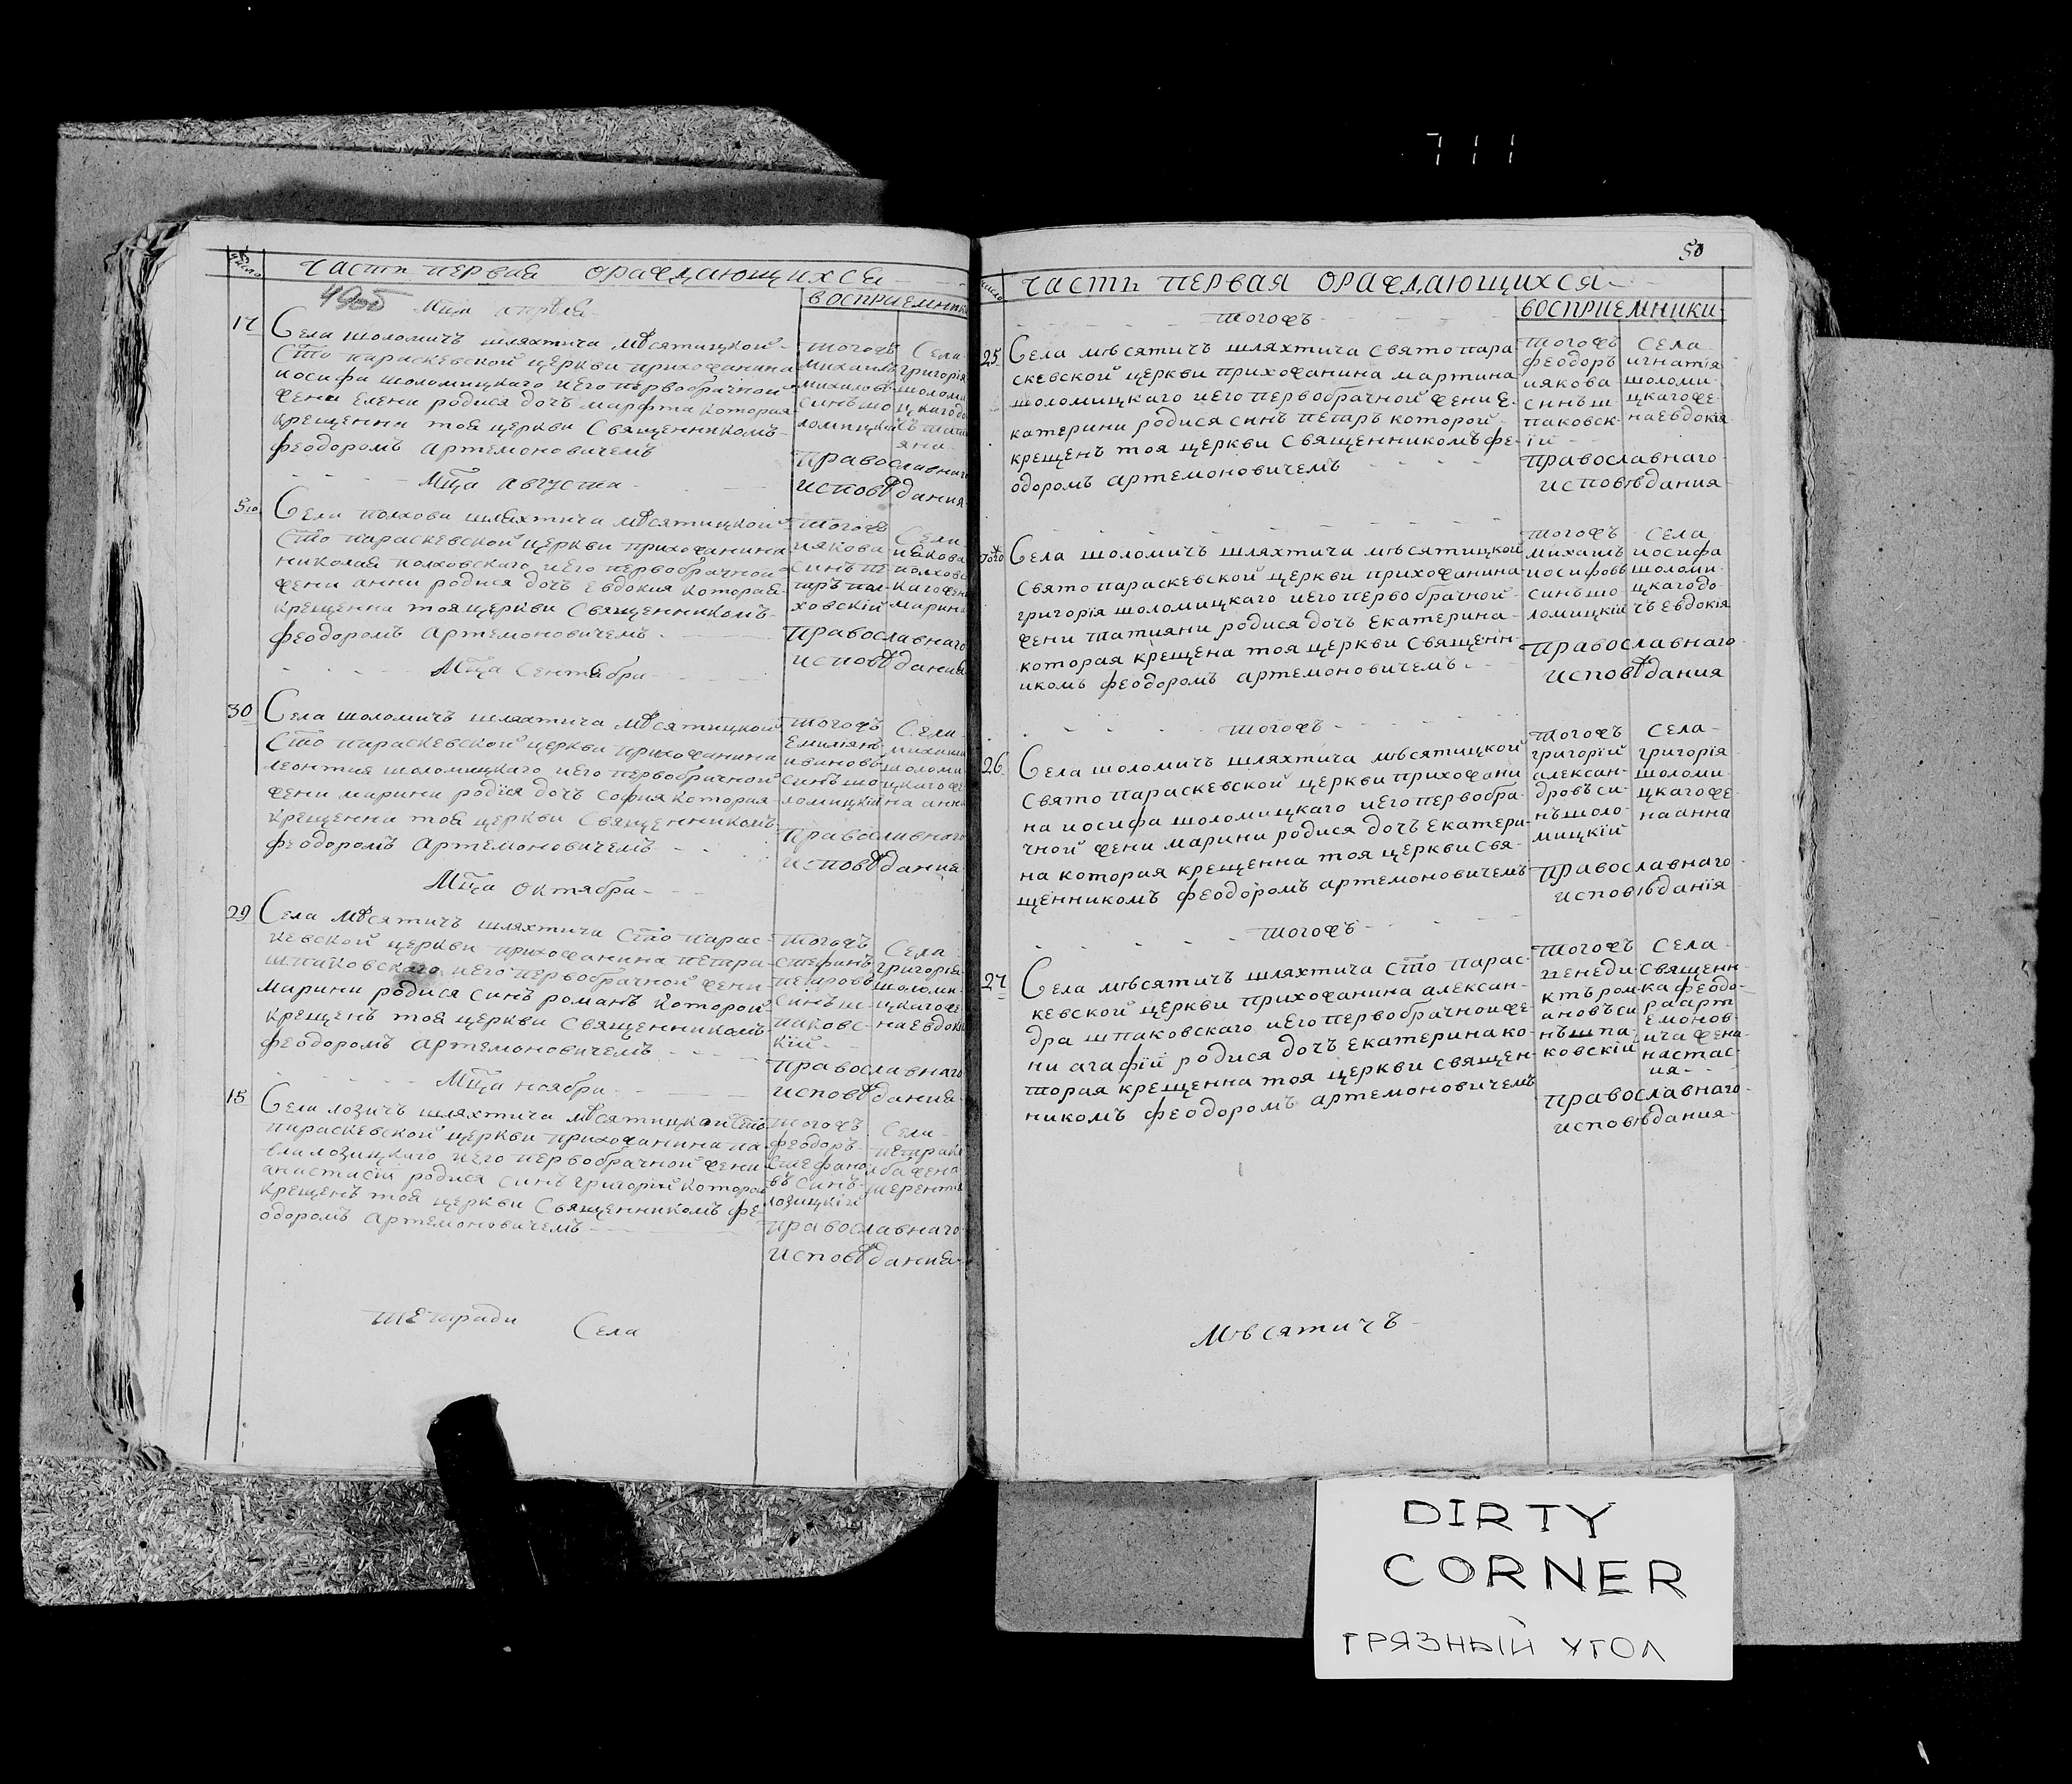 711
число
часть первая ораждающихся
восприемники
4905
Мца апрѣля
17
Села шоломичъ шляхтича мѣсятицкой
Сто параскевской церкви прихожанина
иосифа шоломицкаго иего первобрачной
жени Елени родися дочъ марфта которая
крещенна тоя церкви Священникомъ
феодоромъ артемоновичемъ
тогожъ
михаилъ
михаловъ
синъ шо
ломицкій
Села
григорія
шоломи
цкаго до
чъ тати
яна
православнаго
исповѣдания
Мца августа
5го
Села полхова шляхтича мѣсятицкой
Сто параскевской церкви прихожанина
николая полховскаго иего первобрачной
жени анни родися дочъ Евдокия которая
крещенна тоя церкви Священникомъ
феодоромъ артемоновичемъ
тогожъ
иякова
Синъ пе
тръ пол
ховскій
Села
иякова
полховс
каго жен
марина
православнаго
исповѣдания
Мца Сентября
30
Села шоломичъ шляхтича мѣсятицкой
Сто параскевской церкви прихожанина
леонтия шоломицкаго иего первобрачной
жени марини родися дочъ София которая
крещенна тоя церкви Священникомъ
феодоромъ артемоновичемъ
тогожъ
Емилянъ
ивановъ
синъ шо
ломицкій
Села
михаила
шоломи
цкаго же
на анна
православнаго
исповѣдания
Мца октября
29
Села мѣсятичъ шляхтича Сто парас
кевской церкви прихожанина петра
шпаковскаго иего первобрачной жени
марини родися синъ романъ которой
крещенъ тоя церкви Священникомъ
феодоромъ артемоновичемъ
тогожъ
стефанъ
петровъ
синъ ш
паковс
кій
Села
григорія
шоломи
цкаго же
на Евдокия
православнаго
исповѣдания
Мца ноября
15
Села лозичъ шляхтича мѣсятицкой Сто
параскевской церкви прихожанина па
вла лозицкаго иего первобрачной жени
анастасіи родися синъ григорій которой
крещенъ тоя церкви Священникомъ фе
одоромъ артемоновичемъ
тогожъ
феодоръ
Стефано
въ синъ
лозицкій
Села
православнаго
исповѣдания
тетради Села
50
число
часть первая ораждающихся
восприемники
тогожъ
25
Села мѣсятичъ шляхтича святопара
скевской церкви прихожанина мартина
шоломицкаго иего первобрачной жени е
катерини родися синъ петаръ которой
крещенъ тоя церкви Священникомъ фе
одоромъ артемоновичемъ
тогожъ
феодоръ
иякова
синъ ш
паковск
ій
Села
игнатія
шоломи
цкаго же
на евдокія
православнаго
исповѣдания
тогож
Села шоломичъ шляхтича мѣсятицкой
Святопараскевской церкви прихожанина
григорія шоломицкаго иего первобрачной
жени татияни родися дочъ Екатерина
которая крещена тоя церкви Священн
икомъ феодоромъ артемоновичемъ
тогожъ
михаилъ
иосифовъ
синъ шо
ломицкій
Села
иосифа
шоломи
цкаго до
чъ Евдокія
православнаго
исповѣдания
тогожъ
26
Села шоломичъ шляхтича мѣсятицкой
Святопараскевской церкви прихожани
на иосифа шоломицкаго иего первобра
чной жени марини родися дочъ Екатери
на которая крещенна тоя церкви Свя
щенникомъ феодоромъ артемоновичемъ
тогожъ
григорій
алексан
дровъ си
нъ шоло
мицкій
Села
григорія
шоломи
цкаго же
на анна
православнаго
исповѣданія
тогожъ
27
Села мѣсятичъ шляхтича Сто парас
кевской церкви прихожанина алексан
дра шпаковскаго иего первобрачной же
ни агафіи родися дочъ Екатерина ко
торая крещенна тоя церкви Священ
никомъ феодоромъ артемоновичемъ
тогожъ
венеди
ктъ ром
ановъ си
нъ шпа
ковскій
Села
Священн
ика феодо
ра арт
емонов
ича жена
настас
ия
православнаго
исповѣдания
Мѣсятичъ
DIRTY
CORNER
ГРЯЗНЫЙ УГОЛ